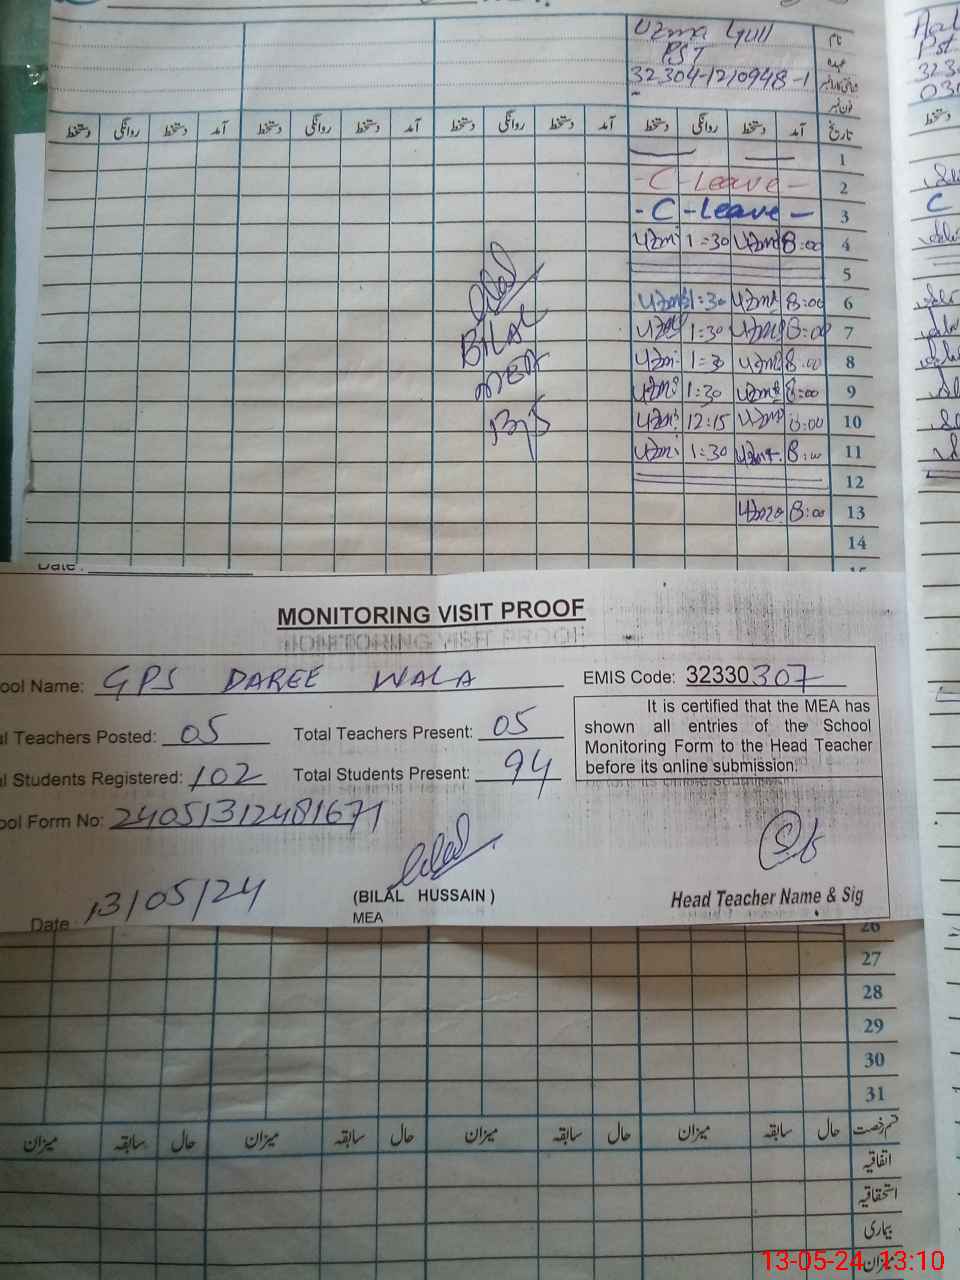 Uzma Gull نام
PST عہدہ
32304-1210948-1
فون نمبر
دستخط روانگی دستخط آمد دستخط روانگی دستخط آمد دستخط روانگی دستخط آمد دستخط روانگی دستخط آمد تاریخ
1
- C - Leave - 2
- C - Leave - 3
Uzm 1:30 Uzma 8:00 4
5
Uzma 1:30 Uzma 8:00 6
Uzma 1:30 Uzma 8:00 7
Uzm 1:30 Uzma 8:00 8
Uzm 1:30 Uzma 8:00 9
Uzm 12:15 Uzma 8:00 10
Uzm 1:30 Uzma 8:00 11
12
Uzma 8:00 13
14
BILAL
MEA
13/5
Date:
MONITORING VISIT PROOF
ool Name: GPS DAREE WALA EMIS Code: 32330307
al Teachers Posted: 05 Total Teachers Present: 05
al Students Registered: 102 Total Students Present: 94
It is certified that the MEA has
shown all entries of the School
Monitoring Form to the Head Teacher
before its online submission.
ool Form No: 24051312481671
Date 13/05/24 (BILAL HUSSAIN) Head Teacher Name & Sig
MEA
26
27
28
29
30
31
میزان سابقہ حال میزان سابقہ حال میزان سابقہ حال میزان سابقہ حال قسم رخصت
اتفاقیہ
استحقاقیہ
بیماری
میزان
13-05-24 13:10